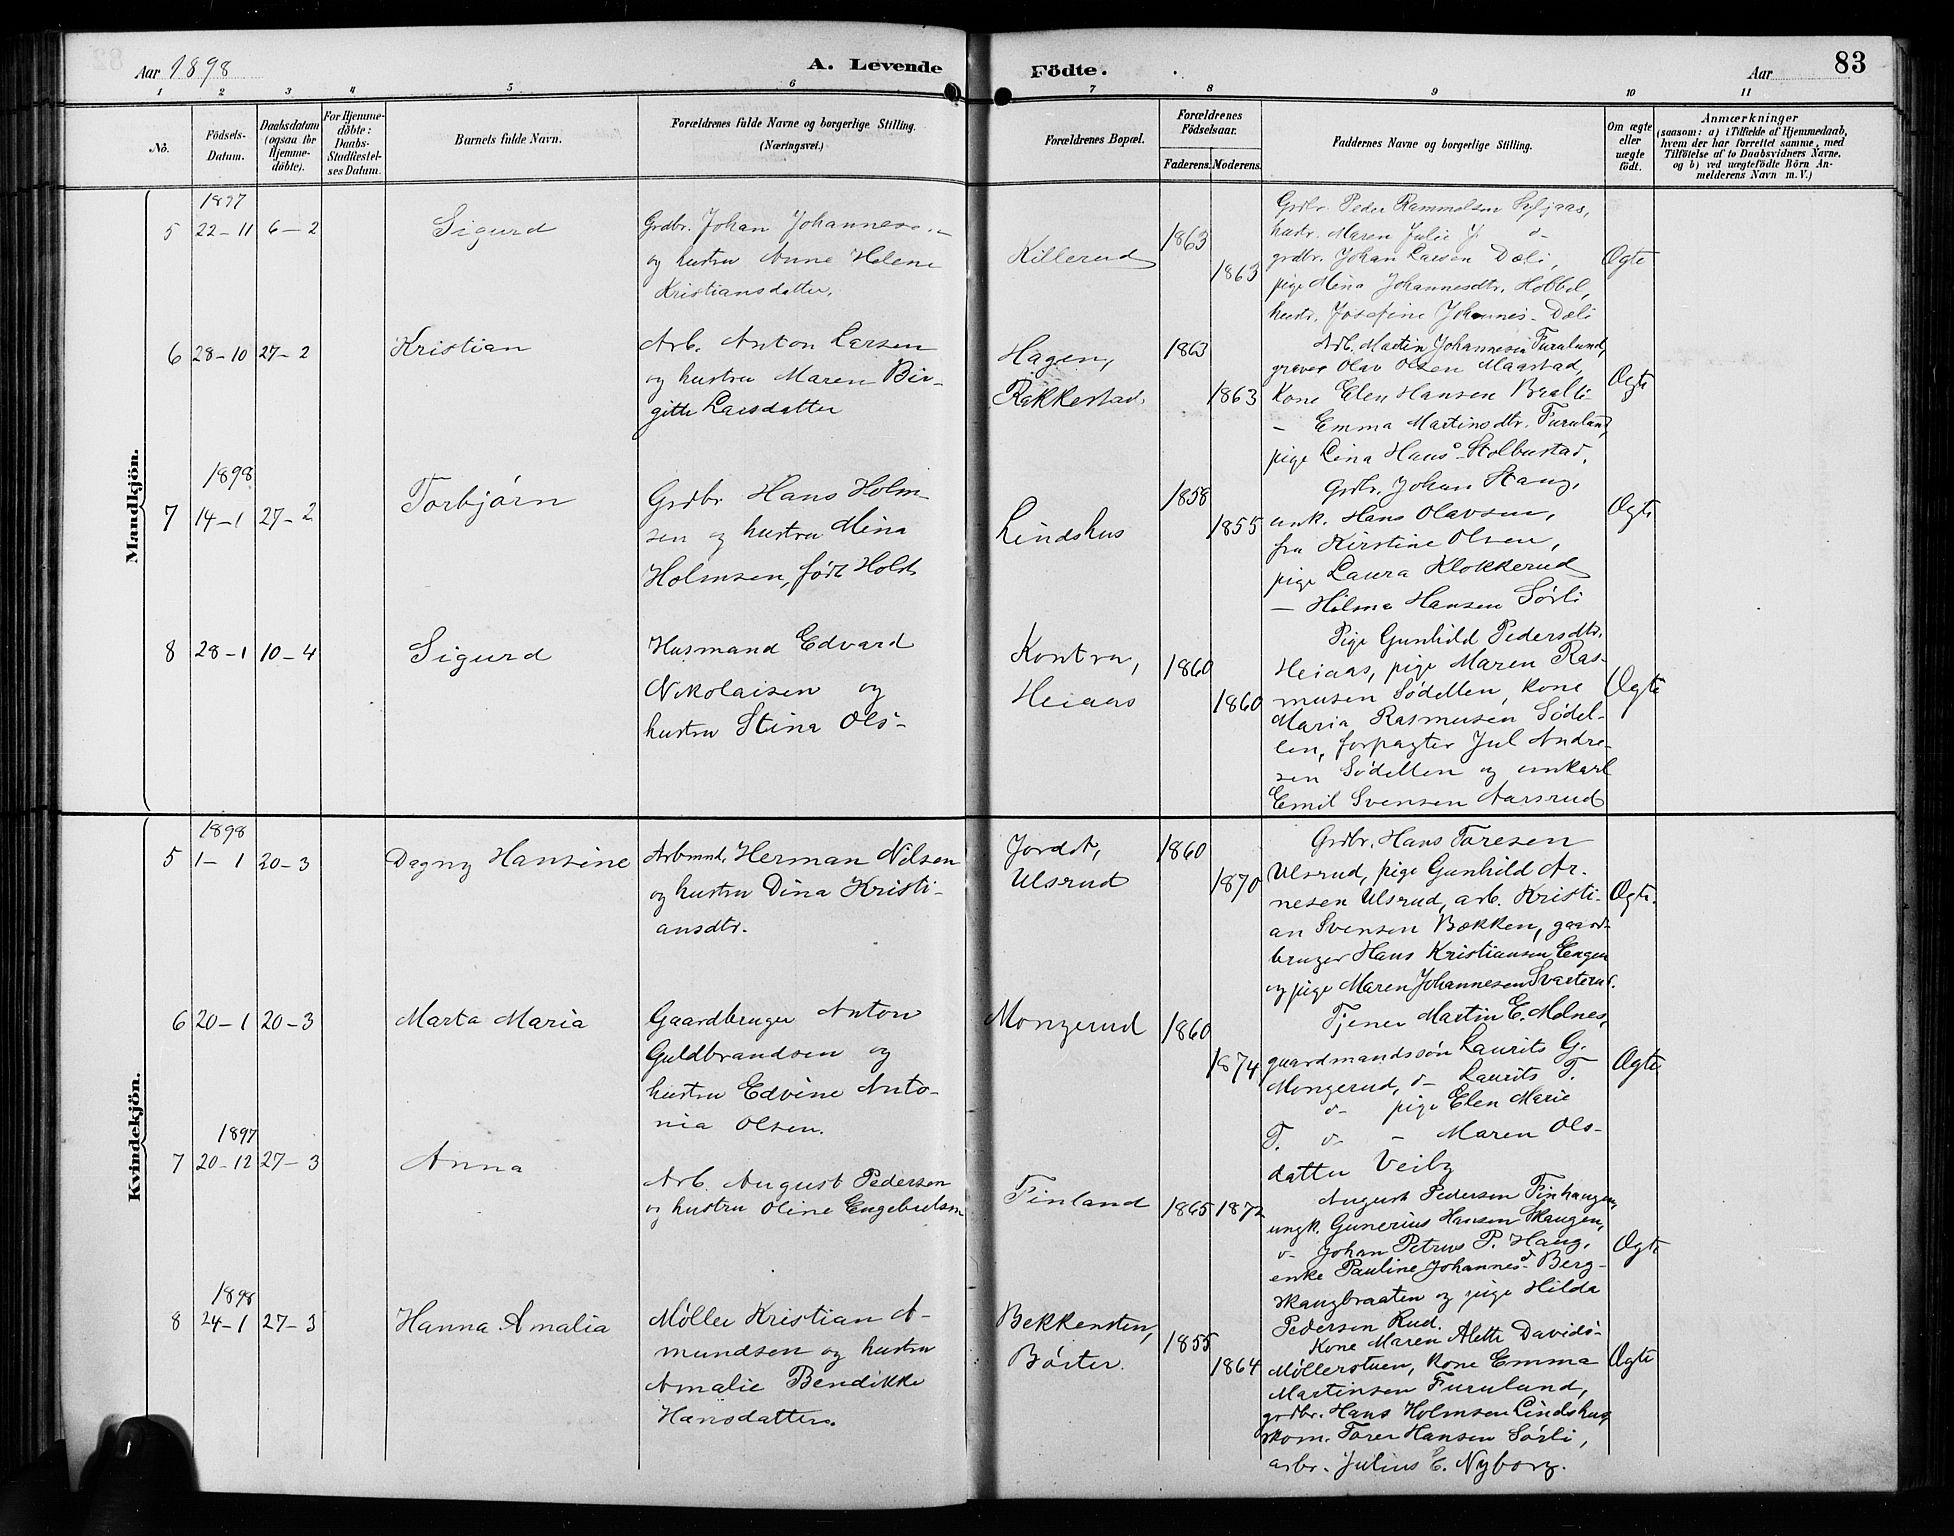 Aar 1898
A. Levende
Födte.
Aar
83
1 2 3 4 5 6 7 8 9 10 11
No.
Födsels-
Datum.
Daabsdatum
(ogsaa for
Hjemme-
döbte).
For Hjemme-
döbte:
Daabs-
Stadfæstel-
ses Datum.
Barnets fulde Navn.
Forældrenes fulde Navne og borgerlige Stilling.
(Næringsvei.)
Forældrenes Bopæl.
Forældrenes
Födselsaar.
Faderens. Moderens.
Faddernes Navne og borgerlige Stilling.
Om ægte
eller
uægte
födt.
Anmærkninger
(saasom: a) i Tilfælde af Hjemmedaab,
hvem der har forrettet samme, med
Tilföielse af to Daabsvidners Navne.
og b) ved uægtefödte Börn An-
melderens Navn m. V.)
Mandkjön.
1897
5 22-11 6-2
Sigurd
Grdbr. Johan Johannes
og hustru Anne Helene
Kristiansdatter.
Killerud
1863
1863
Grdbr. Peder
hustr. Maren Julie J. d-
grdbr. Johan Larsen Dæli,
pige Mina Johannesdtr. Hobbel,
hustr. Josefine Johannes- Dæli
Ægte
6 28-10 27-2
Kristian
Arb. Anton Larsen
og hustru Maren Bir-
gitte Larsdatter
Hagen,
Rakkestad.
1863
1863
Arb. Martin Johannesen Furulund,
graver Olav Olsen Maastad,
Kone Elen Hansen
- Emma Martinsdtr. Furulund,
pige Lina Hans- Stolbustad.
Ægte
1898
7 14-1 27-2
Torbjørn
Grdbr Hans Holm-
sen og hustru Mina
Holmsen, født Holst
Lindshus
1858
1855
Grdbr. Johan Haug,
unk. Hans Olavsen,
fru Kirstine Olsen,
pige Laura Klokkerud
- Hilma Hansen Sørli
Ægte
8 28-1 10-4
Sigurd
Husmand Edvard
Nikolaisen og
hustru Stina Ols-
Kontra,
Heiaas
1860
1860
Pige Gunhild Pedersdtr.
Heiaas, pige Maren Ras-
musen Södellen, kone
Maria Rasmusen Södel-
len, forpagter Jul Andre-
sen Södellen og unkarl
Emil Svensen Aarsrud
Ægte
Kvindekjön.
1898
5 1-1 20-3
Dagny Hansine
Arbmnd. Herman Nilsen
og hustru Dina Kristi-
ansdtr.
Jordet,
Ulsrud
1860
1870
Grdbr. Hans Toresen
Ulsrud, pige Gunhild Ar-
nesen Ulsrud, arb. Kristi-
an Svensen Bækken, gaard-
bruger Hans Kristiansen Engen
og pige Maren Johannesen Svarterud.
Ægte.
6 20-1 20-3
Marta Maria
Gaardbruger Anton
Guldbrandsen og
hustru Edvine Anto-
nia Olsen.
Mongerud
1860
1874
Tjener Martin E. Melnes,
gaardmandssøn Laurits G.
Mongerud, d- Laurits T.
d- pige Elen Marie
T. d- - Maren Ols-
datter Veiby
Ægte
1897
7 20-12 27-3
Anna
Arb. August Pedersen
og hustru Oline Engebretsen
Finland
1865 1872
August Pedersen Finhaugen,
ungk. Gunerius Hansen Skaugen,
d- Johan Petrus P. Haug,
enke Pauline Johannesd- Berg-
skaugbraaten og pige Hilda
Pedersen Rud.
Ægte
1898
8 24-1 27-3
Hanna Amalia
Møller Kristian A-
mundsen og hustru
Amalie Bendikke
Hansdatter.
Bekkensten,
Börter.
1855
1864
Kone Maren Alette Davids-
Møllerstuen, kone Emma
Martinsen Furulund,
grdbr. Hans Holmsen Lindshus
skom. Torer Hansen Sørli,
arbr. Julius E. Nyborg.
Ægte